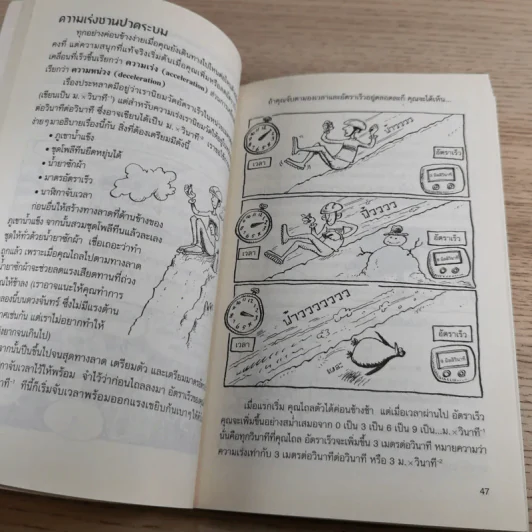 ความเร่งชวนปวดระบม
ทุกอย่างค่อนข้างง่ายเมื่อคุณยังเดินทางไปไหนต่อไหน
คงที่ แต่ความสนุกที่แท้จริงเริ่มต้นเมื่อคุณเพิ่มหรือลด
เคลื่อนที่เร็วขึ้นเรียกว่า ความเร่ง (acceleration) ส่วน
เรียกว่า ความหน่วง (deceleration)
เรื่องประหลาดมีอยู่ว่าเรานิยมวัดอัตราเร็วใน
(เขียนเป็น ม.×วินาที⁻¹) แต่สำหรับความเร่งเรานิยมวัด
ต่อวินาทีต่อวินาที ซึ่งอาจเขียนได้เป็น ม.×วินาที⁻²
ง่ายๆ มาอธิบายเรื่องนี้กัน สิ่งที่ต้องเตรียมมีดังนี้
• ภูเขาน้ำแข็ง
• ชุดโพลีทีนยืดหยุ่นได้
• น้ำยาซักผ้า
• มาตรอัตราเร็ว
• นาฬิกาจับเวลา
ก่อนอื่นให้สร้างทางลาดที่ด้านข้างของ
ภูเขาน้ำแข็ง จากนั้นสวมชุดโพลีทีนแล้วละเลง
ชุดให้ทั่วด้วยน้ำยาซักผ้า เชื่อเถอะว่าทำ
ถูกแล้ว เพราะเมื่อคุณไถลไปตามทางลาด
น้ำยาซักผ้าจะช่วยลดแรงเสียดทานที่ถ่วง
คุณให้ช้าลง (เราอาจแนะให้คุณทำการ
ทดลองนี้บนดวงจันทร์ ซึ่งไม่มีแรงต้าน
แต่เราไม่อยากทำให้
ยากจนเกินไป)
จากนั้นปีนขึ้นไปจนสุดทางลาด เตรียมตัว และเตรียมมาตร
เวลาไว้ให้พร้อม จำไว้ว่าก่อนไถลลงมา อัตราเร็วของ
ทีนี้ก็เริ่มจับเวลาพร้อมออกแรงเขยิบก้นเบาๆ ให้
ถ้าคุณจับตามองเวลาและอัตราเร็วอยู่ตลอดละก็ คุณจะได้เห็น...
เวลา
อัตราเร็ว
ปิ๋วววว
เวลา
อัตราเร็ว
ป้าวววววววว
เวลา
อัตราเร็ว
เมื่อแรกเริ่ม คุณไถลตัวได้ค่อนข้างช้า แต่เมื่อเวลาผ่านไป อัตราเร็ว
คุณจะเพิ่มขึ้นอย่างสม่ำเสมอจาก 0 เป็น 3 เป็น 6 เป็น 9 เป็น...ม.×วินาที⁻¹
นั่นคือทุกวินาทีที่คุณไถล อัตราเร็วจะเพิ่มขึ้น 3 เมตรต่อวินาที หมายความว่า
ความเร่งเท่ากับ 3 เมตรต่อวินาทีต่อวินาที หรือ 3 ม.×วินาที⁻²
47